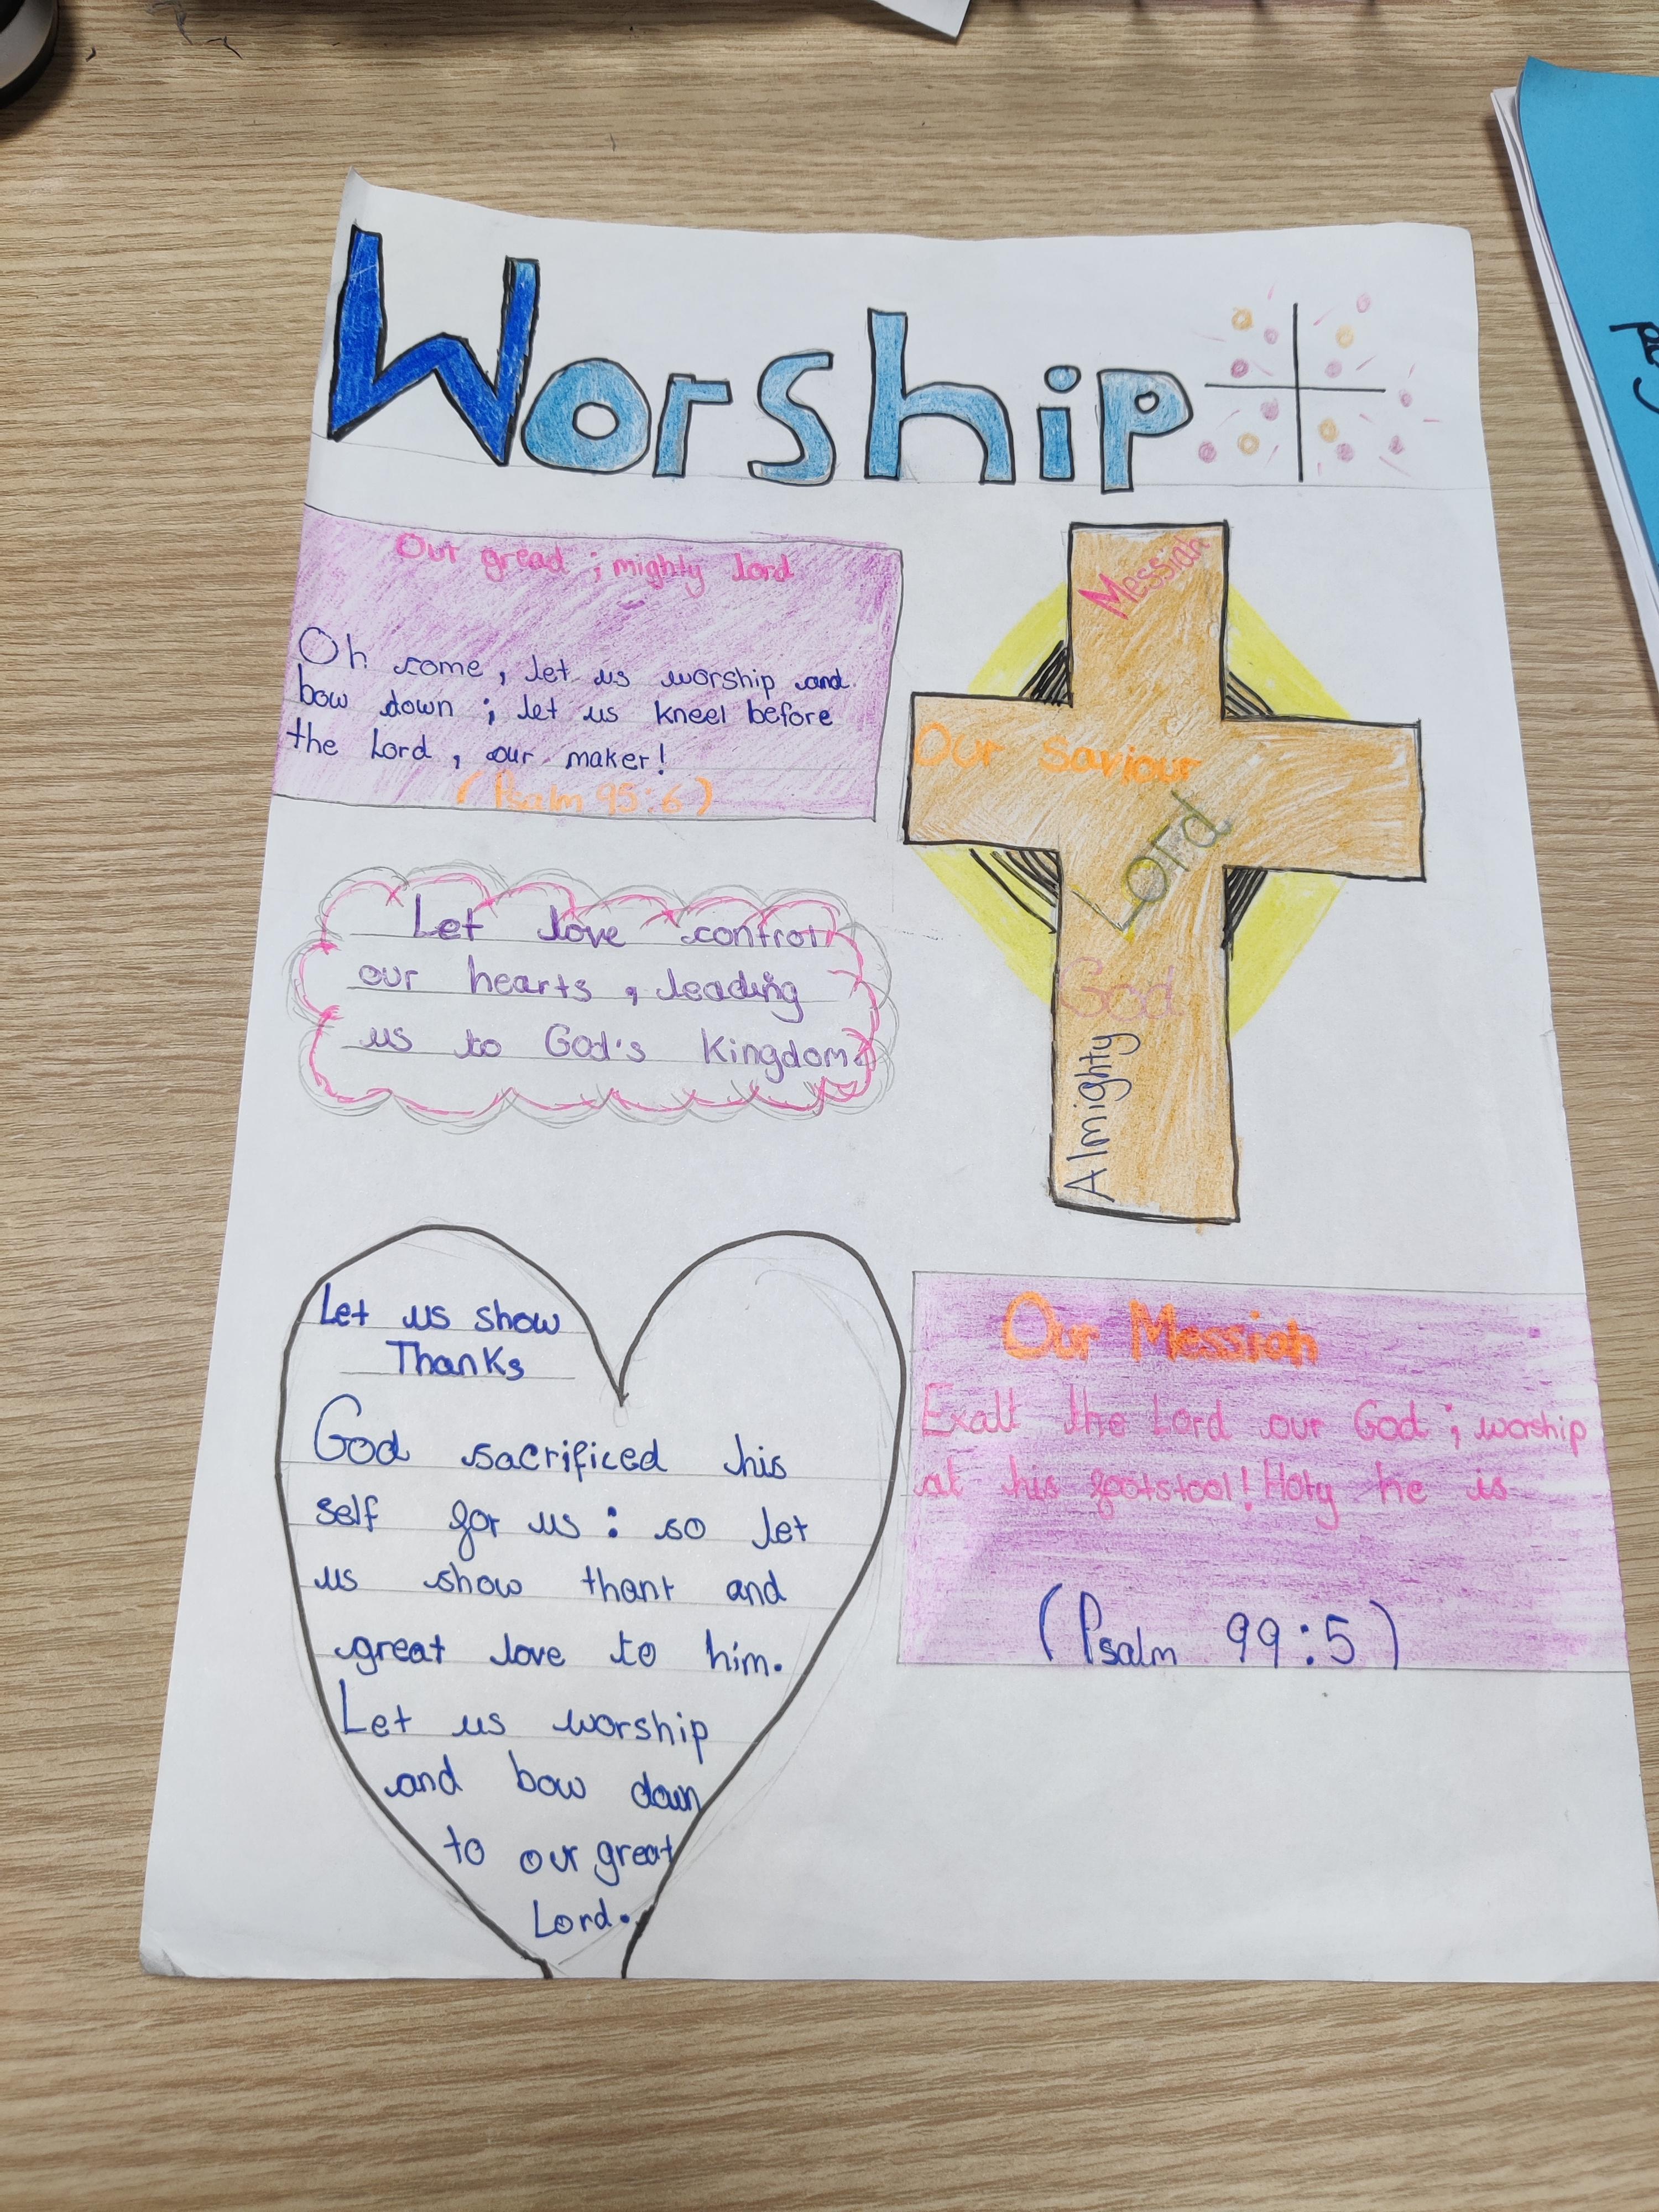 Worship
Our gread ; mighty lord
Oh come, let us worship and
bow down ; let us kneel before
the Lord, our maker!
(Psalm 95:6)
Messiah
Our Saviour
Lord
God
Almighty
Let love control
our hearts, leading
us to God's Kingdom.
Let us show
Thanks
God sacrificed his
self for us : so let
us show thant and
great love to him.
Let us worship
and bow down
to our great
Lord.
Our Messiah
Exalt the Lord our God ; worship
at his footstool! Holy he is
(Psalm 99:5)